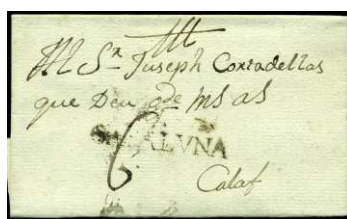 Al Sr. Juseph Cortadellas
que Deu gde ms as
CATALVNA
6
Calaf